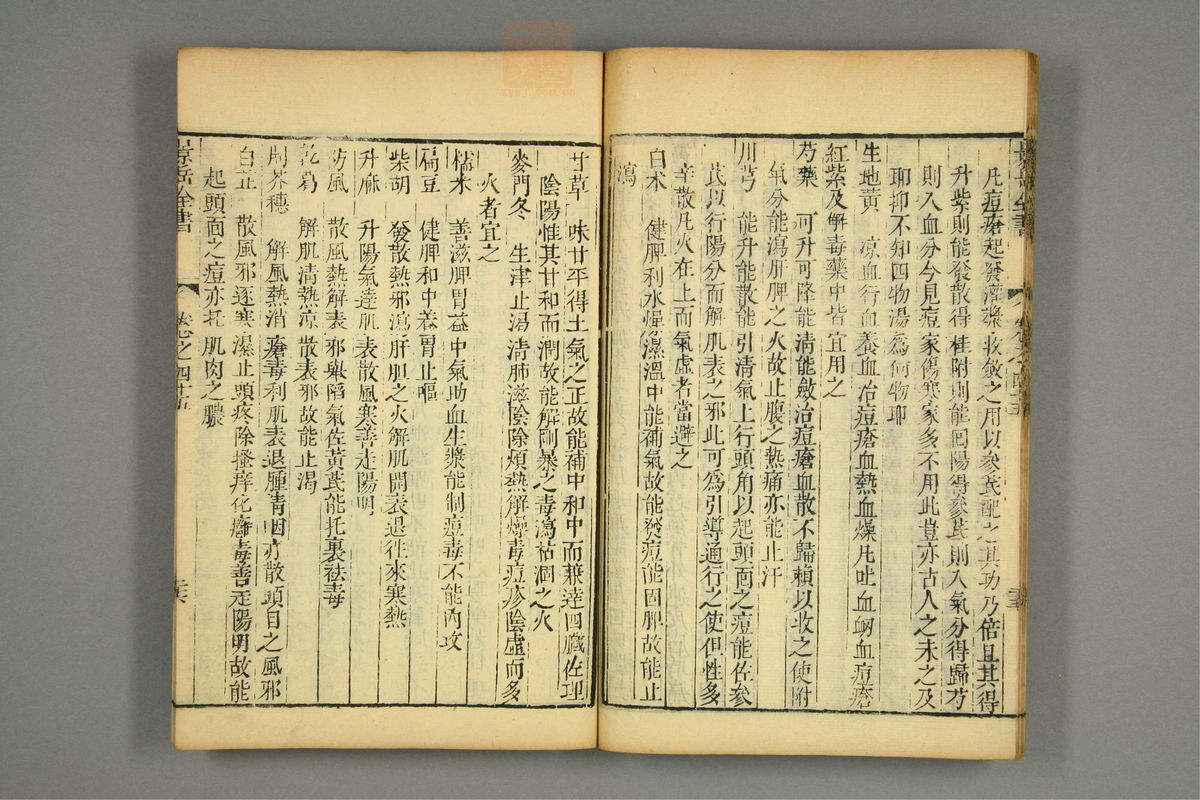 凡痘瘡起發灌漿收斂之用以參芪配之其功乃倍且其得
升柴則能發散得桂附則能回陽得參芪則入氣分得歸芍
則入血分今見痘家傷寒家多不用此豈亦古人之未之及
耶抑不知四物湯為何物耶
生地黃　凉血行血養血治痘瘡血熱血燥凡吐血衂血痘瘡
紅紫及解毒藥中皆宜用之
芍藥　可升可降能清能斂治痘瘡血散不歸賴以收之使附
氣分能瀉肝脾之火故止腹之熱痛亦能止汗
川芎　能升能散能引清氣上行頭角以起頭面之痘能佐參
芪以行陽分而解肌表之邪此可為引導通行之使但性多
辛散凡火在上而氣虛者當避之
白朮　健脾利水燥濕溫中能補氣故能發痘能固脾故能止
瀉
甘草　味甘平得土氣之正故能補中和中而兼達四臟佐理
陰陽惟其甘和而潤故能解剛暴之毒瀉枯涸之火
麥門冬　生津止渴清肺滋陰除煩熱解燥毒痘疹陰虛而多
火者宜之
糯米　善滋脾胃益中氣助血生漿能制痘毒不能內攻
扁豆　健脾和中養胃止嘔
柴胡　發散熱邪瀉肝胆之火解肌開表退往來寒熱
升麻　升陽氣達肌表散風寒善走陽明
防風　散風熱解表邪舉陷氣佐黃芪能托裏祛毒
乾葛　解肌清熱凉散表邪故能止渴
荆芥穗　解風熱消瘡毒利肌表退腫清咽亦散頭目之風邪
白芷　散風邪逐寒濕止頭疼除搔痒化癰毒善走陽明故能
起頭面之痘亦托肌肉之膿
景岳全書
卷之四十五